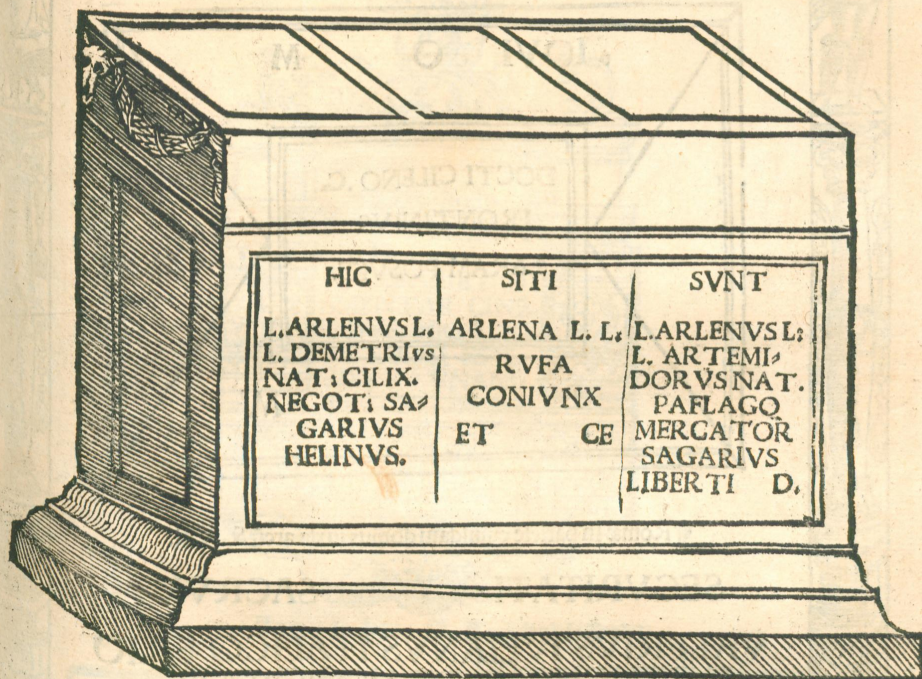 HIC SITI SVNT
L. ARLENVS L.
L. DEMETRIVS
NAT: CILIX.
NEGOT: SA=
GARIVS
HELINVS.
ARLENA L. L.
RVFA
CONIVNX
ET CE
L. ARLENVS L:
L. ARTEMI=
DORVS NAT.
PAFLAGO
MERCATOR
SAGARIVS
LIBERTI D.